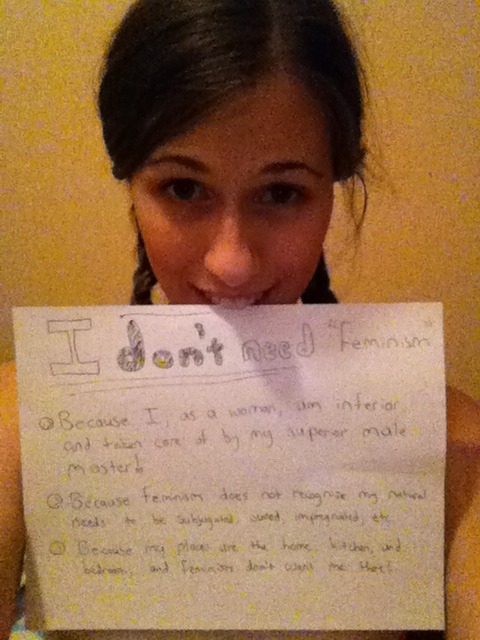 I don't need "Feminism"
Because I, as a woman, am inferior
and taken care of by my superior male
master!
Because feminism does not recognize my natural
needs to be subjugated, owned, impregnated, etc.
Because my places are the home, kitchen, and
bedroom, and feminism don't want me there!